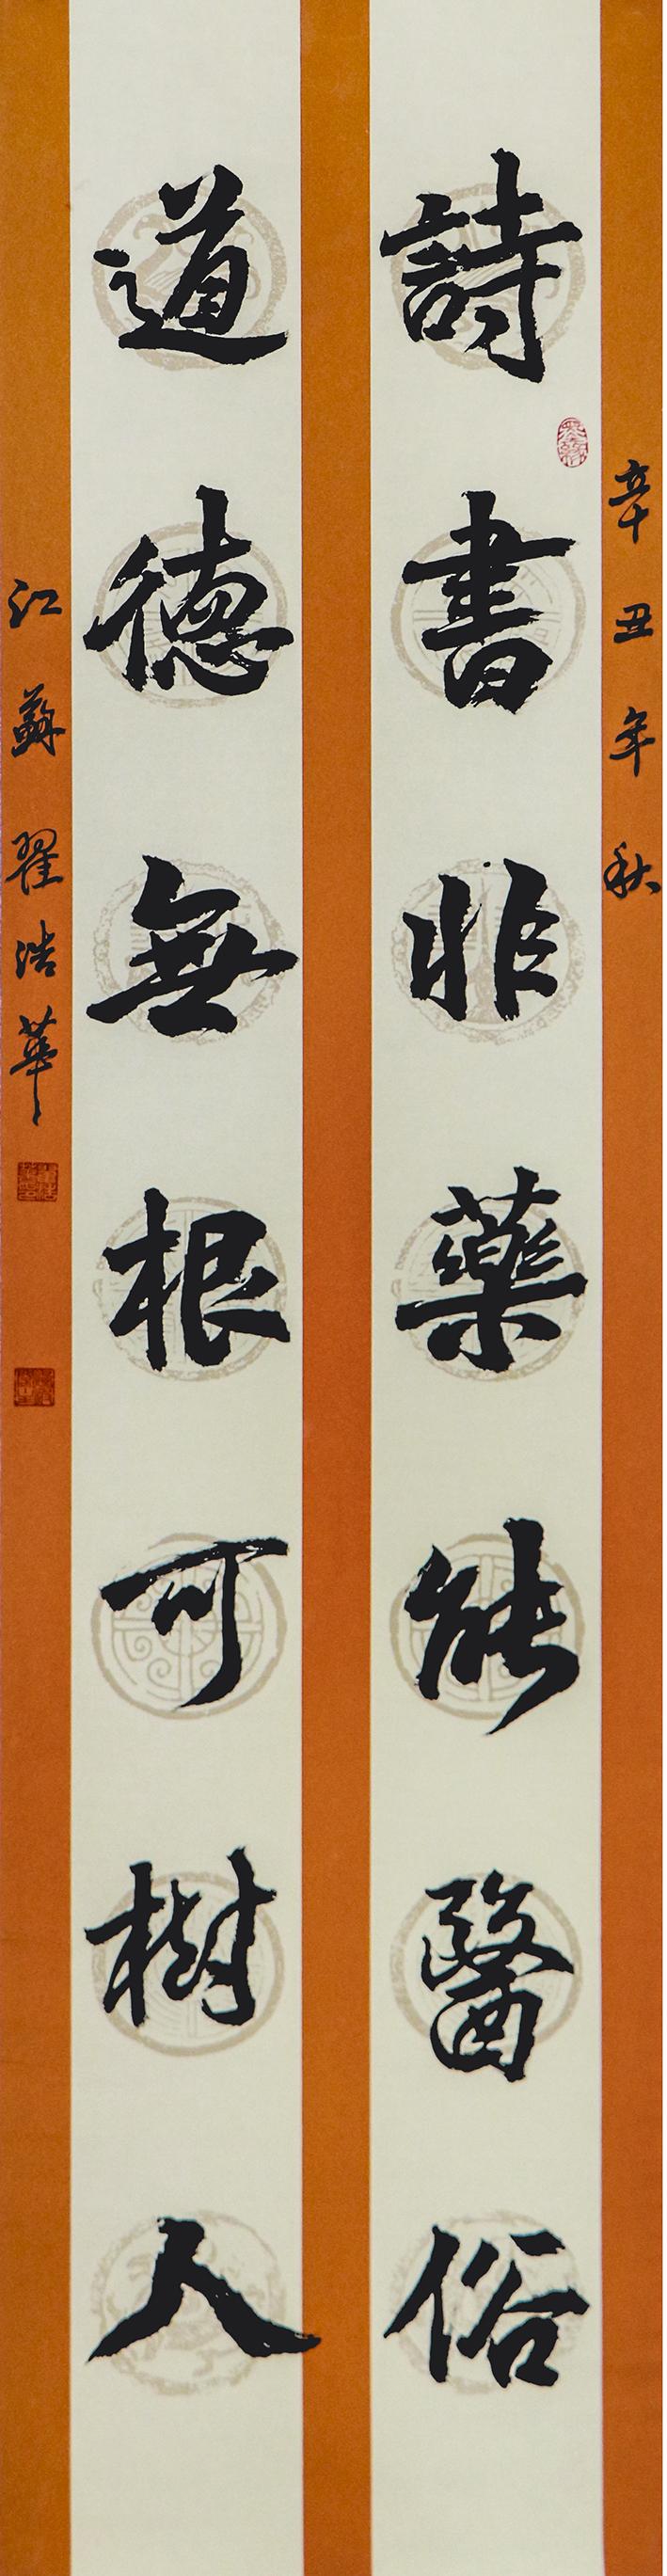 辛丑年秋
詩書非藥能醫俗
道德無根可樹人
江蘇翟浩華